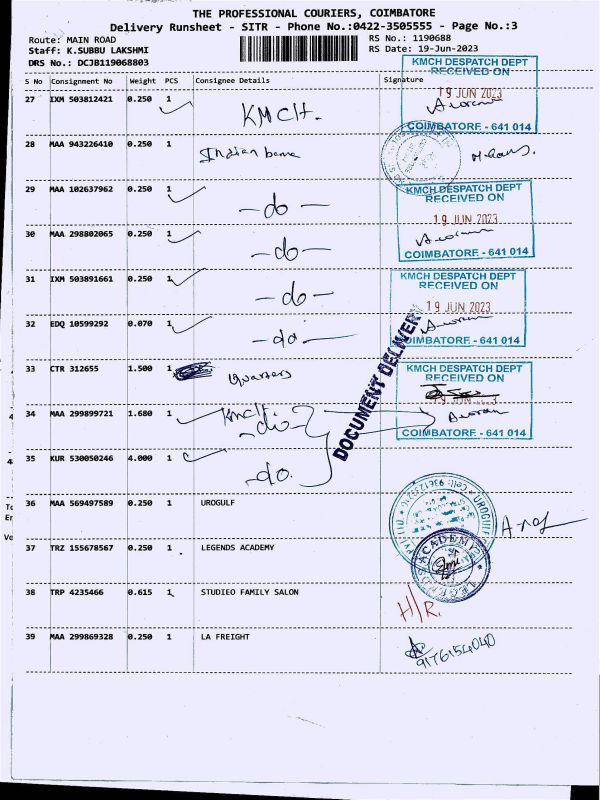 THE PROFESSIONAL COURIERS, COIMBATORE
Delivery Runsheet - SITR - Phone No.:0422-3505555 - Page No.:3
Route: MAIN ROAD
RS No.: 1190688
Staff: K.SUBBU LAKSHMI
RS Date: 19-Jun-2023
DRS No.: DCJB119068803
S No Consignment No Weight PCS Consignee Details Signature
KMCH DESPATCH DEPT
RECEIVED ON
19 JUN 2023
COIMBATORE - 641 014
27 IXM 503812421 0.250 1 KMCH.
28 MAA 943226410 0.250 1 Indian
29 MAA 102637962 0.250 1 -do-
KMCH DESPATCH DEPT
RECEIVED ON
19 JUN 2023
COIMBATORE - 641 014
30 MAA 298802065 0.250 1 -do-
31 IXM 503891661 0.250 1 -do-
KMCH DESPATCH DEPT
RECEIVED ON
19 JUN 2023
COIMBATORE - 641 014
32 EDQ 10599292 0.070 1 -do-
DOCUMENT DELIVERY
33 CTR 312655 1.500 1 Quarters
KMCH DESPATCH DEPT
RECEIVED ON
COIMBATORE - 641 014
34 MAA 299899721 1.680 1 KMCH -do-
35 KUR 530050246 4.000 1 -do.
36 MAA 569497589 0.250 1 UROGULF
37 TRZ 155678567 0.250 1 LEGENDS ACADEMY
LEGENDS ACADEMY
38 TRP 4235466 0.615 1 STUDIEO FAMILY SALON H/R.
39 MAA 299869328 0.250 1 LA FREIGHT
9176154040